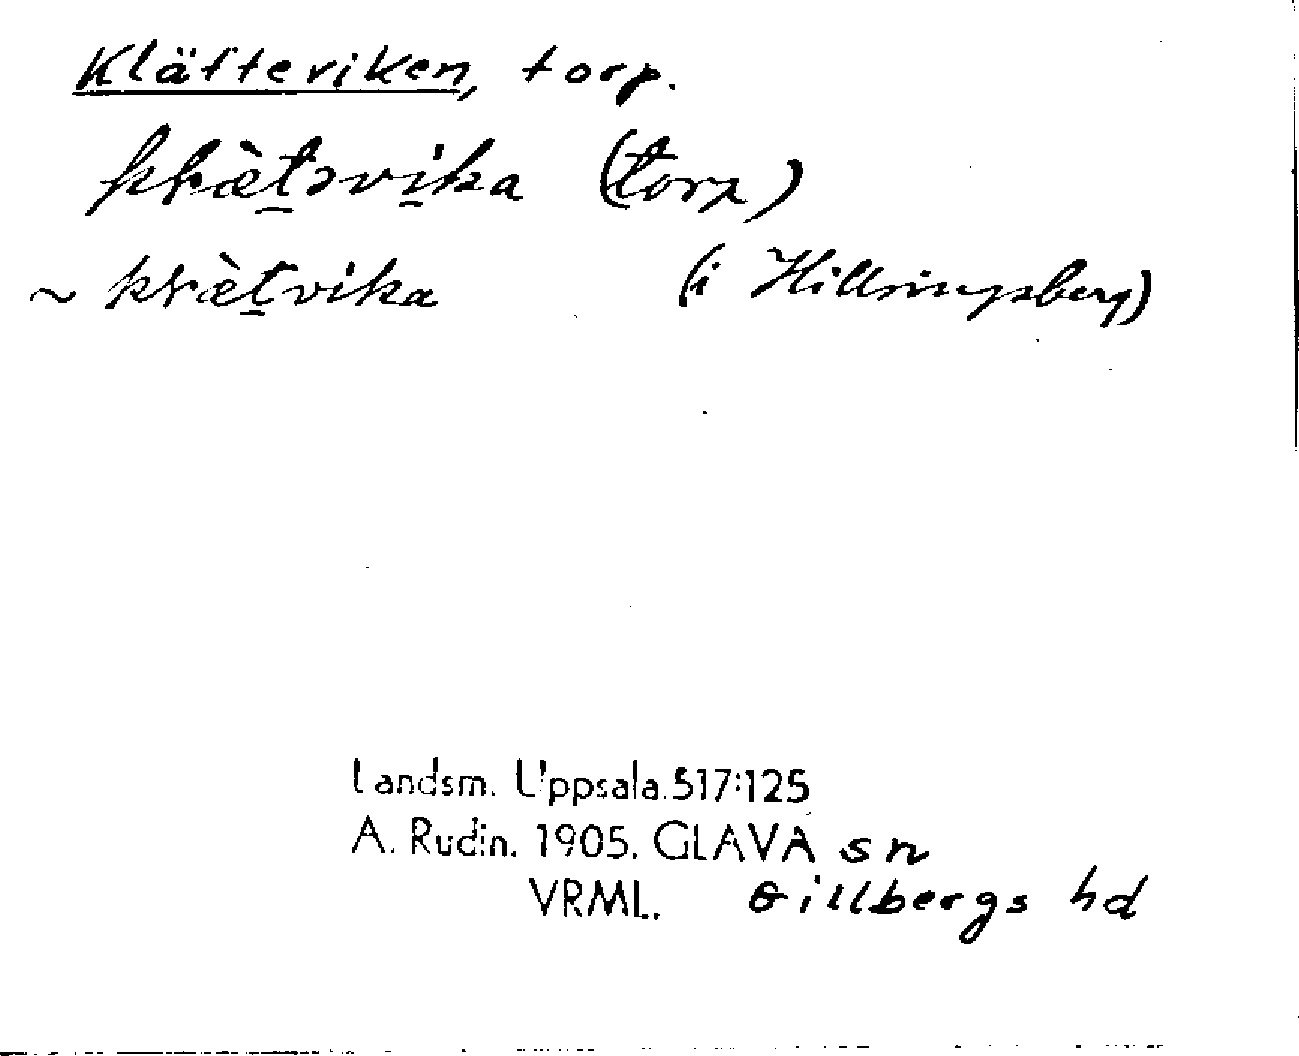 Kläfteviken, torp.
(torp)
(i Hillringsberg)
Landsm. Uppsala. 517:125
A. Rudin. 1905. GLAVA sn
VRML. Gillbergs hd